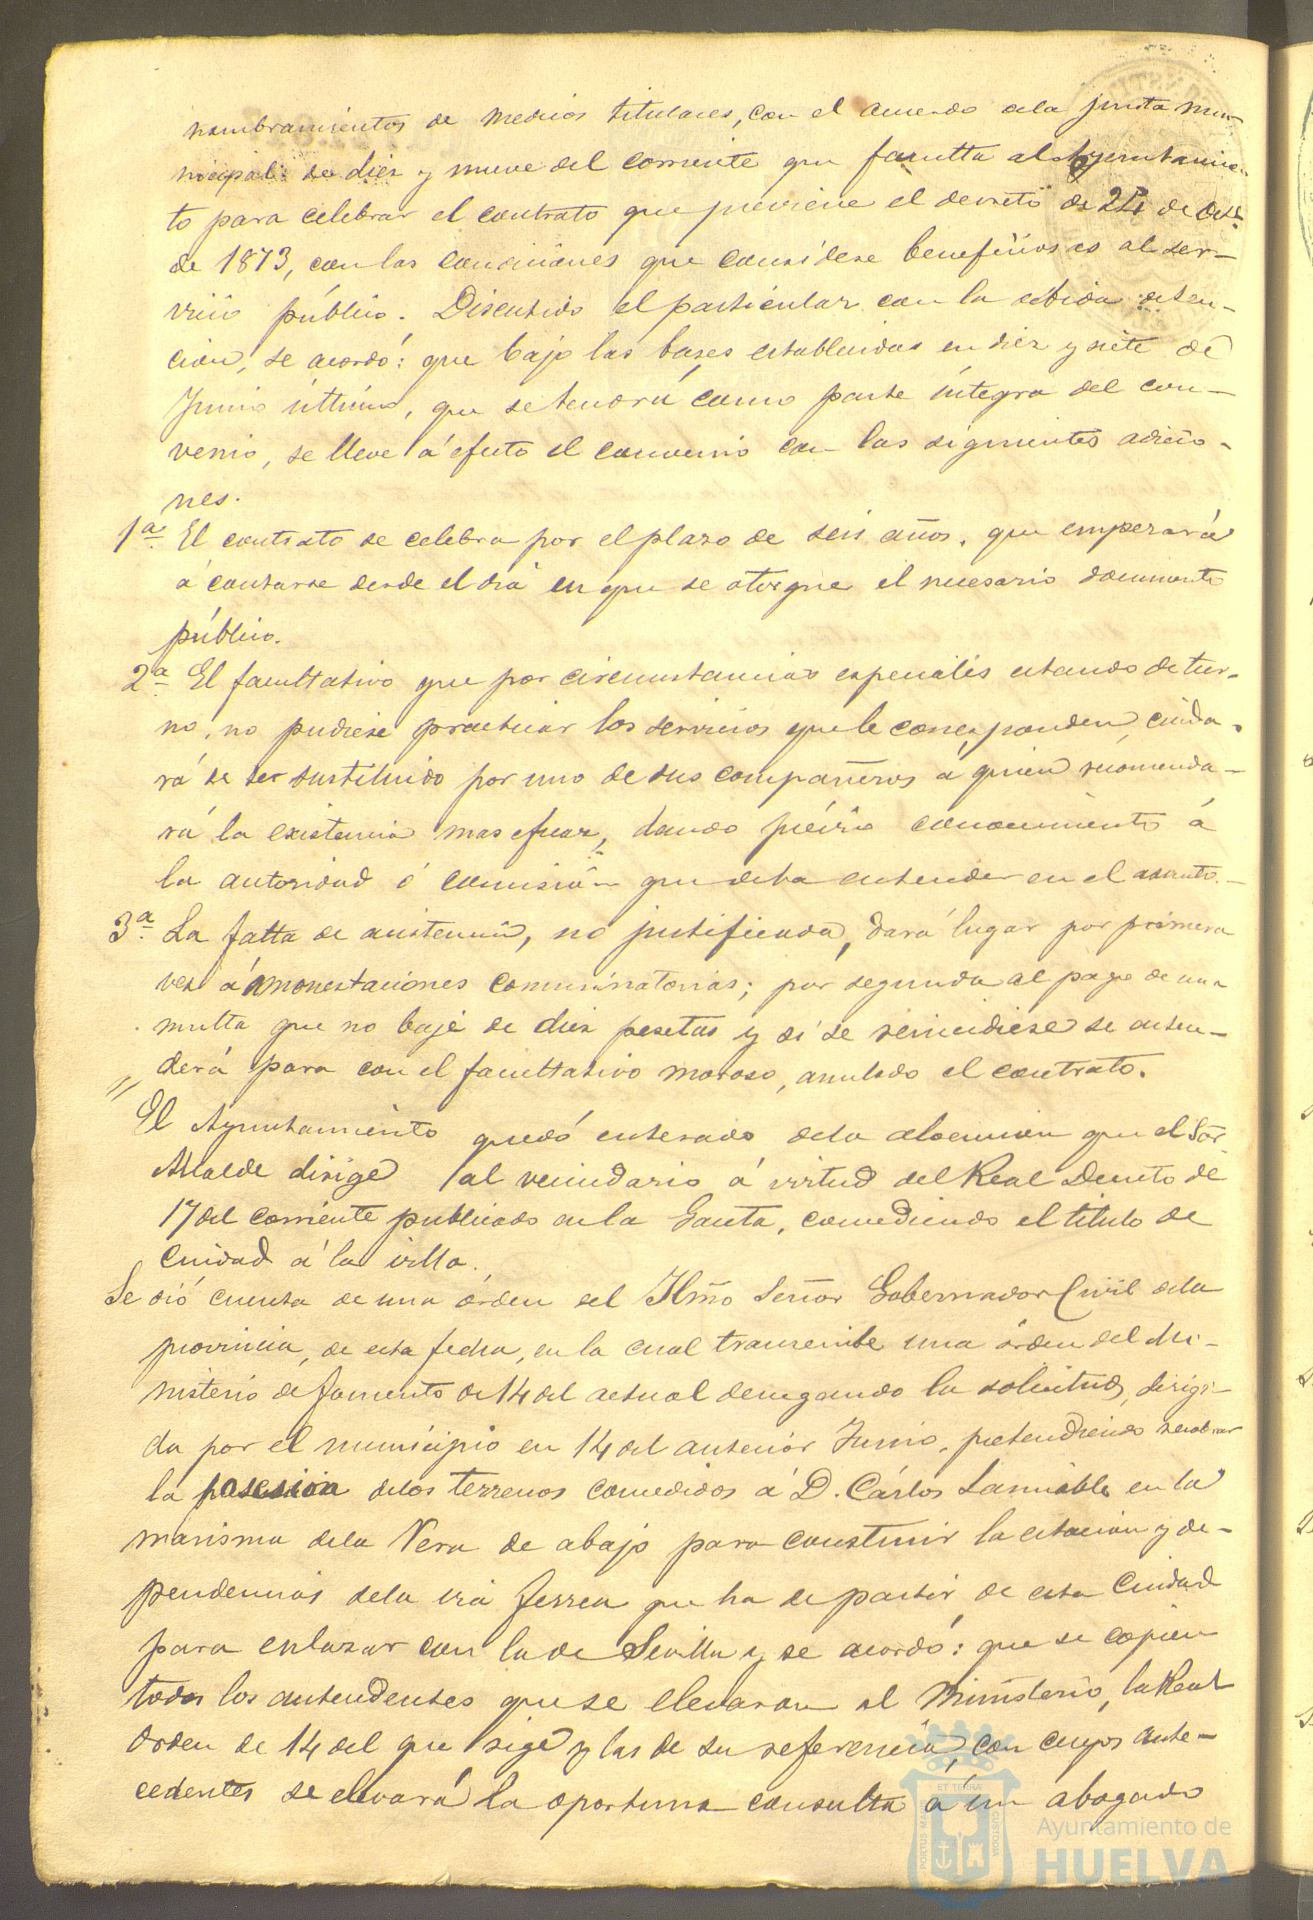 nombramientos de medicos titulares, con el acuerdo dela junta mu-
nicipal de diez y nueve del corriente que faculta al Ayuntamien-
to para celebrar el contrato que previene el decreto de 24 de Octe
de 1873, con las condiciones que considere beneficiosas al ser-
vicio público. Discutido el particular con la debida deten-
cion, se acordó: que bajo las bases establecidas en diez y siete de
Junio último, que se tendrá como parte íntegra del con-
venio, se lleve á efecto el convenio con las siguientes adicio-
nes.
1ª El contrato se celebra por el plazo de seis años, que empezará
á contarse desde el dia en que se otorgue el necesario documento
público.
2ª El facultativo que por circunstancias especiales estando de tur-
no, no pudiese practicar los servicios que le corresponden, cuida-
rá de ser sustituido por uno de sus compañeros á quien recomenda-
rá la asistencia mas eficaz, dando prévio conocimiento á
la autoridad ó comision que deba entender en el asunto.-
3ª La falta de asistencia, no justificada, dará lugar por primera
vez á amonestaciones comminatorias; por segunda al pago de una
multa que no baje de diez pesetas y si se reincidiese se enten-
derá para con el facultativo moroso, anulado el contrato.
El Ayuntamiento quedó enterado dela alocucion que el Sor
Alcalde dirige al vecindario á virtud del Real Decreto de
17 del corriente publicado en la Gaceta, concediendo el título de
Ciudad á la villa.
Se dió cuenta de una órden del Ilmo Señor Gobernador Civil dela
provincia, de esta fecha, en la cual transcribe una órden del Mi-
nisterio de Fomento de 14 del actual denegando la solicitud, dirigi-
da por el municipio en 14 del anterior Junio, pretendiendo recobrar
la posesion delos terrenos concedidos á D. Cárlos Lamiable en la
marisma dela Vera de abajo para construir la estacion y de-
pendencias dela via ferrea que ha de partir de esta Ciudad
para enlazar con la de Sevilla y se acordó: que se copien
todos los antecedentes que se elevaron al Ministerio, la Real
Orden de 14 del que rige y las de su referencia, con cuyos ante-
cedentes se elevará la oportuna consulta á un abogado
PORTUS MARIS
ET TERRAE
CUSTODIA
Ayuntamiento de
HUELVA